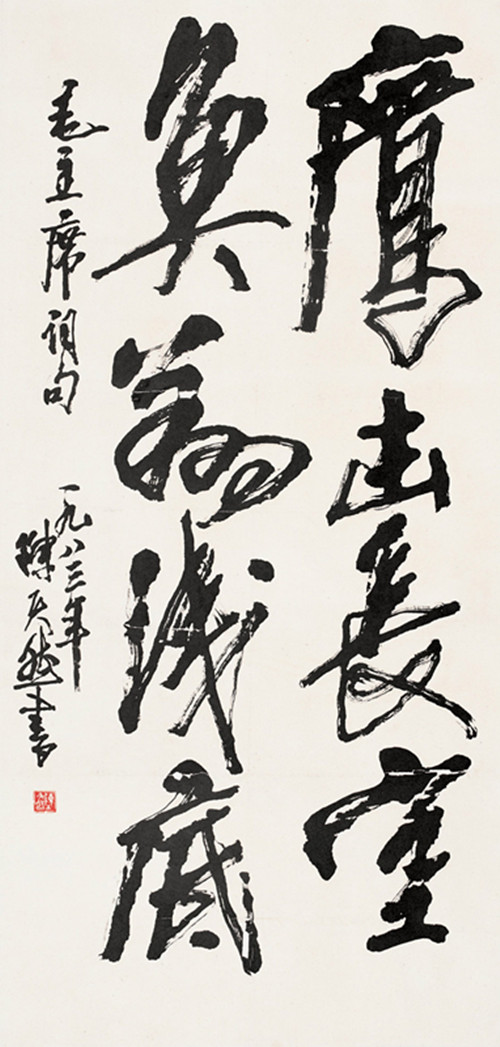 鹰击长空
鱼翔浅底
毛主席词句
一九八三年
陈天然书